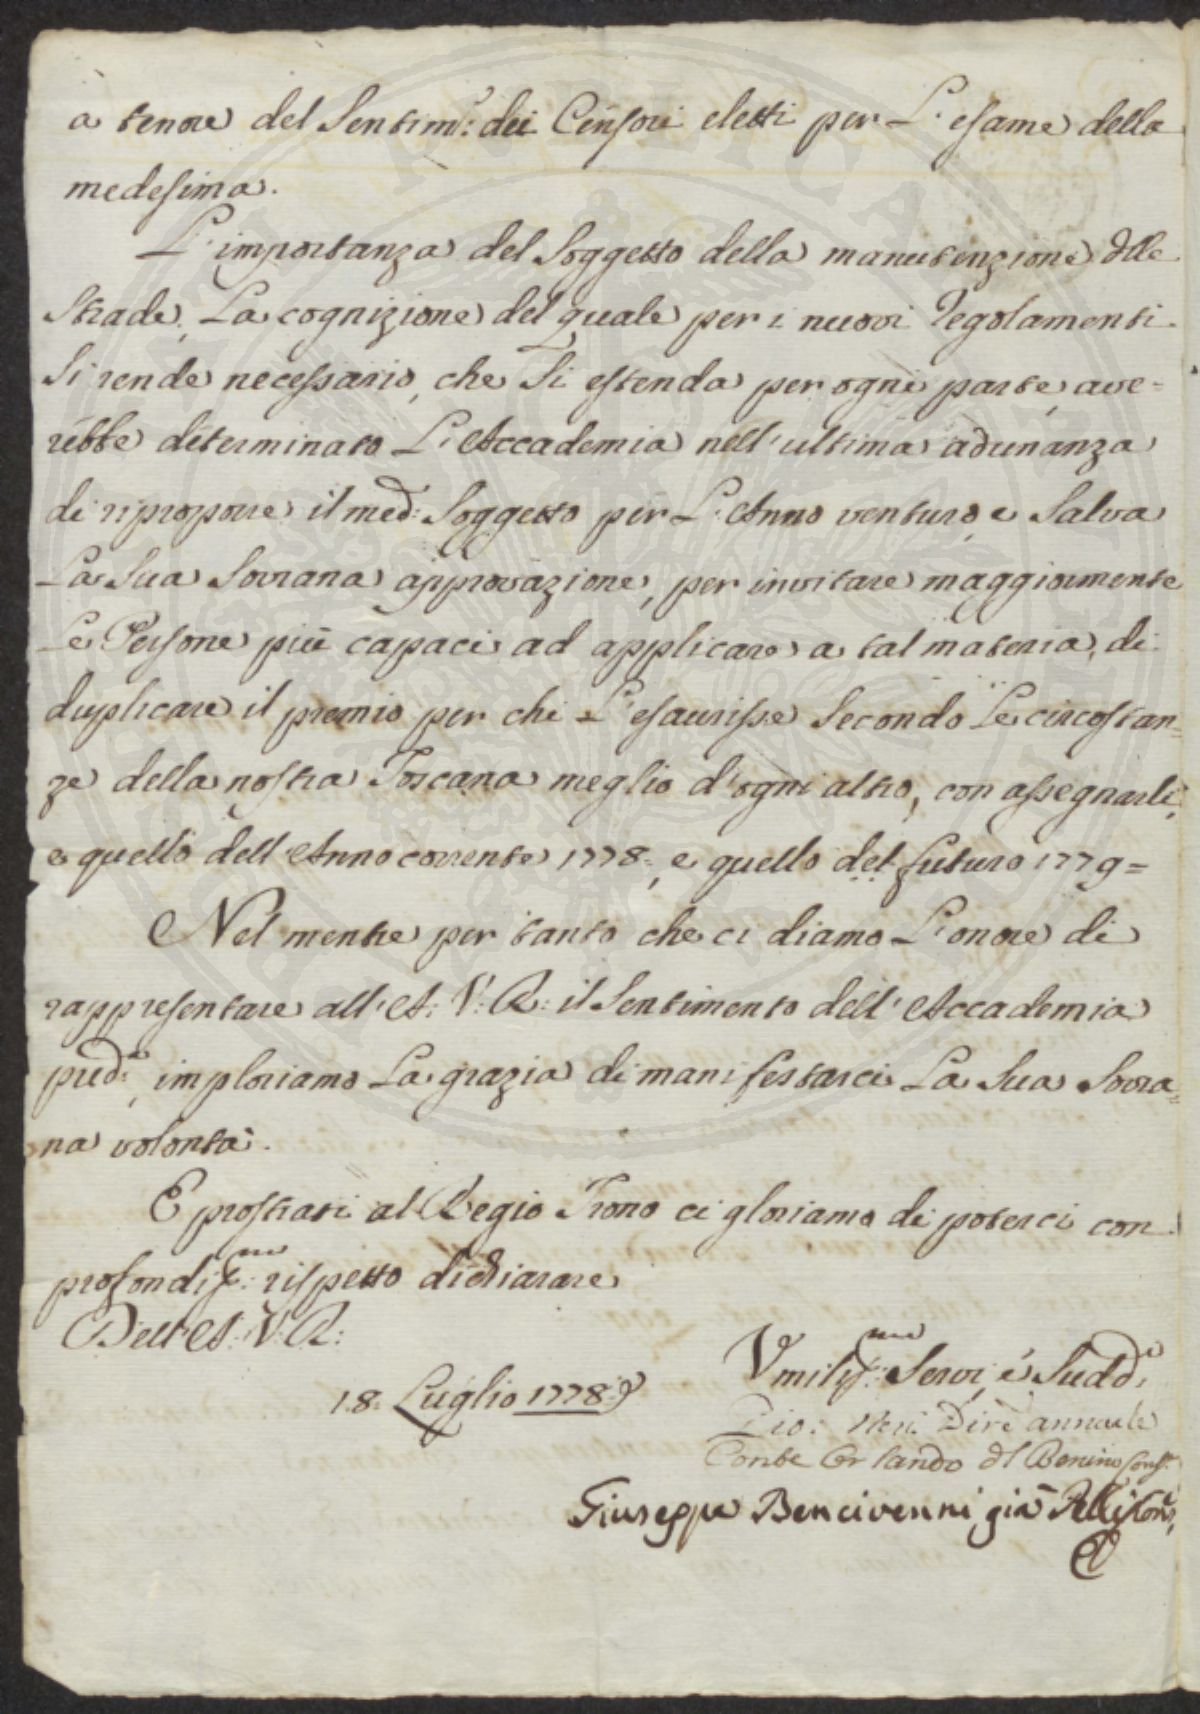 à tenore del Sentim.º dei Censori eletti per L'esame della
medesima.
L'importanza del Soggetto della manutenzione delle
Strade, La cognizione del quale per i nuovi Regolamenti
Si rende necessario, che Si estenda per ogni parte, ave=
rebbe determinato L'Accademia nell'ultima adunanza
di riproporre il med:º Soggetto per L'Anno venturo, e Salva
La Sua Sovrana approvazione, per invitare maggiormente
Le Persone più capaci ad applicare a tal materia, di
duplicare il premio per chi L'esaurisse Secondo Le circostan=
ze della nostra Toscana meglio d'ogni altro, con assegnarli,
e quello dell'Anno corrente 1778:, e quello del futuro 1779=
Nel mentre per tanto che ci diamo L'onore di
rappresentare all'A: V: R: il Sentimento dell'Accademia
pred:ª, imploriamo La grazia di manifestarci La Sua Sovra=
na volontà.
E prostrati al Regio Trono ci gloriamo di poterci con
profondiss:mo rispetto dichiarare
Dell'A: V: R:
18: Luglio 1778:
Umiliss:mi Servi, e Sudd:i
Gio: Neri Dire annuale
Conte Orlando del Benino Cons:
Giuseppe Bencivenni già Pelli Cons: